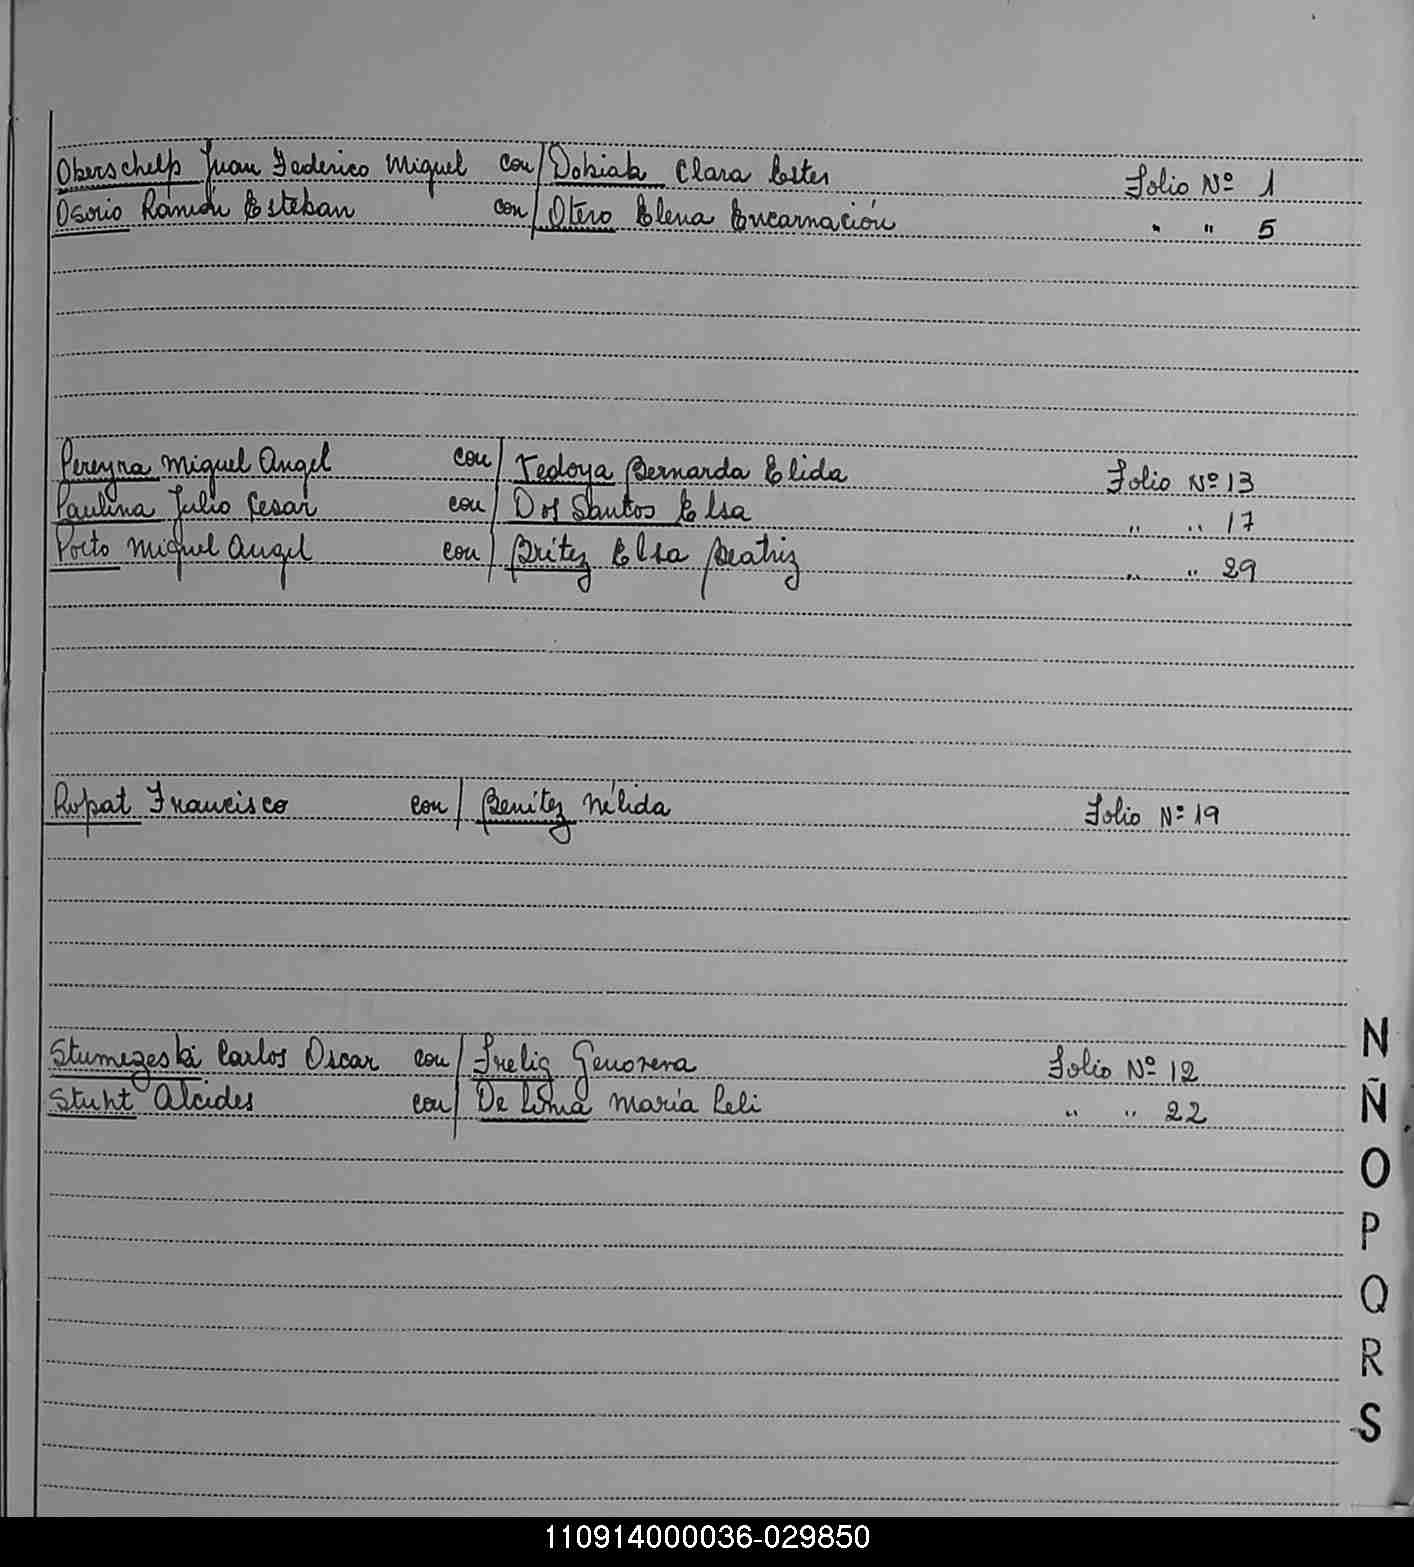 Oberschelp Juan Federico Miguel con Dobiak Clara Ester Folio Nº 1
Osorio Ramón Esteban con Otero Elena Encarnación " " 5
Pereyra Miguel Angel con Vedoya Bernarda Elida Folio Nº 13
Paulina Julio Cesar con Dos Santos Elsa " " 17
Porto Miguel Angel con Britez Elsa Beatriz " " 29
Ropat Francisco con Benítez Nélida Folio Nº 19
Carlos Oscar con Frelig Genoveva Folio Nº 12
Stuht Alcides con De Lima María Leli " " 22
N
Ñ
O
P
Q
R
S
110914000036-029850